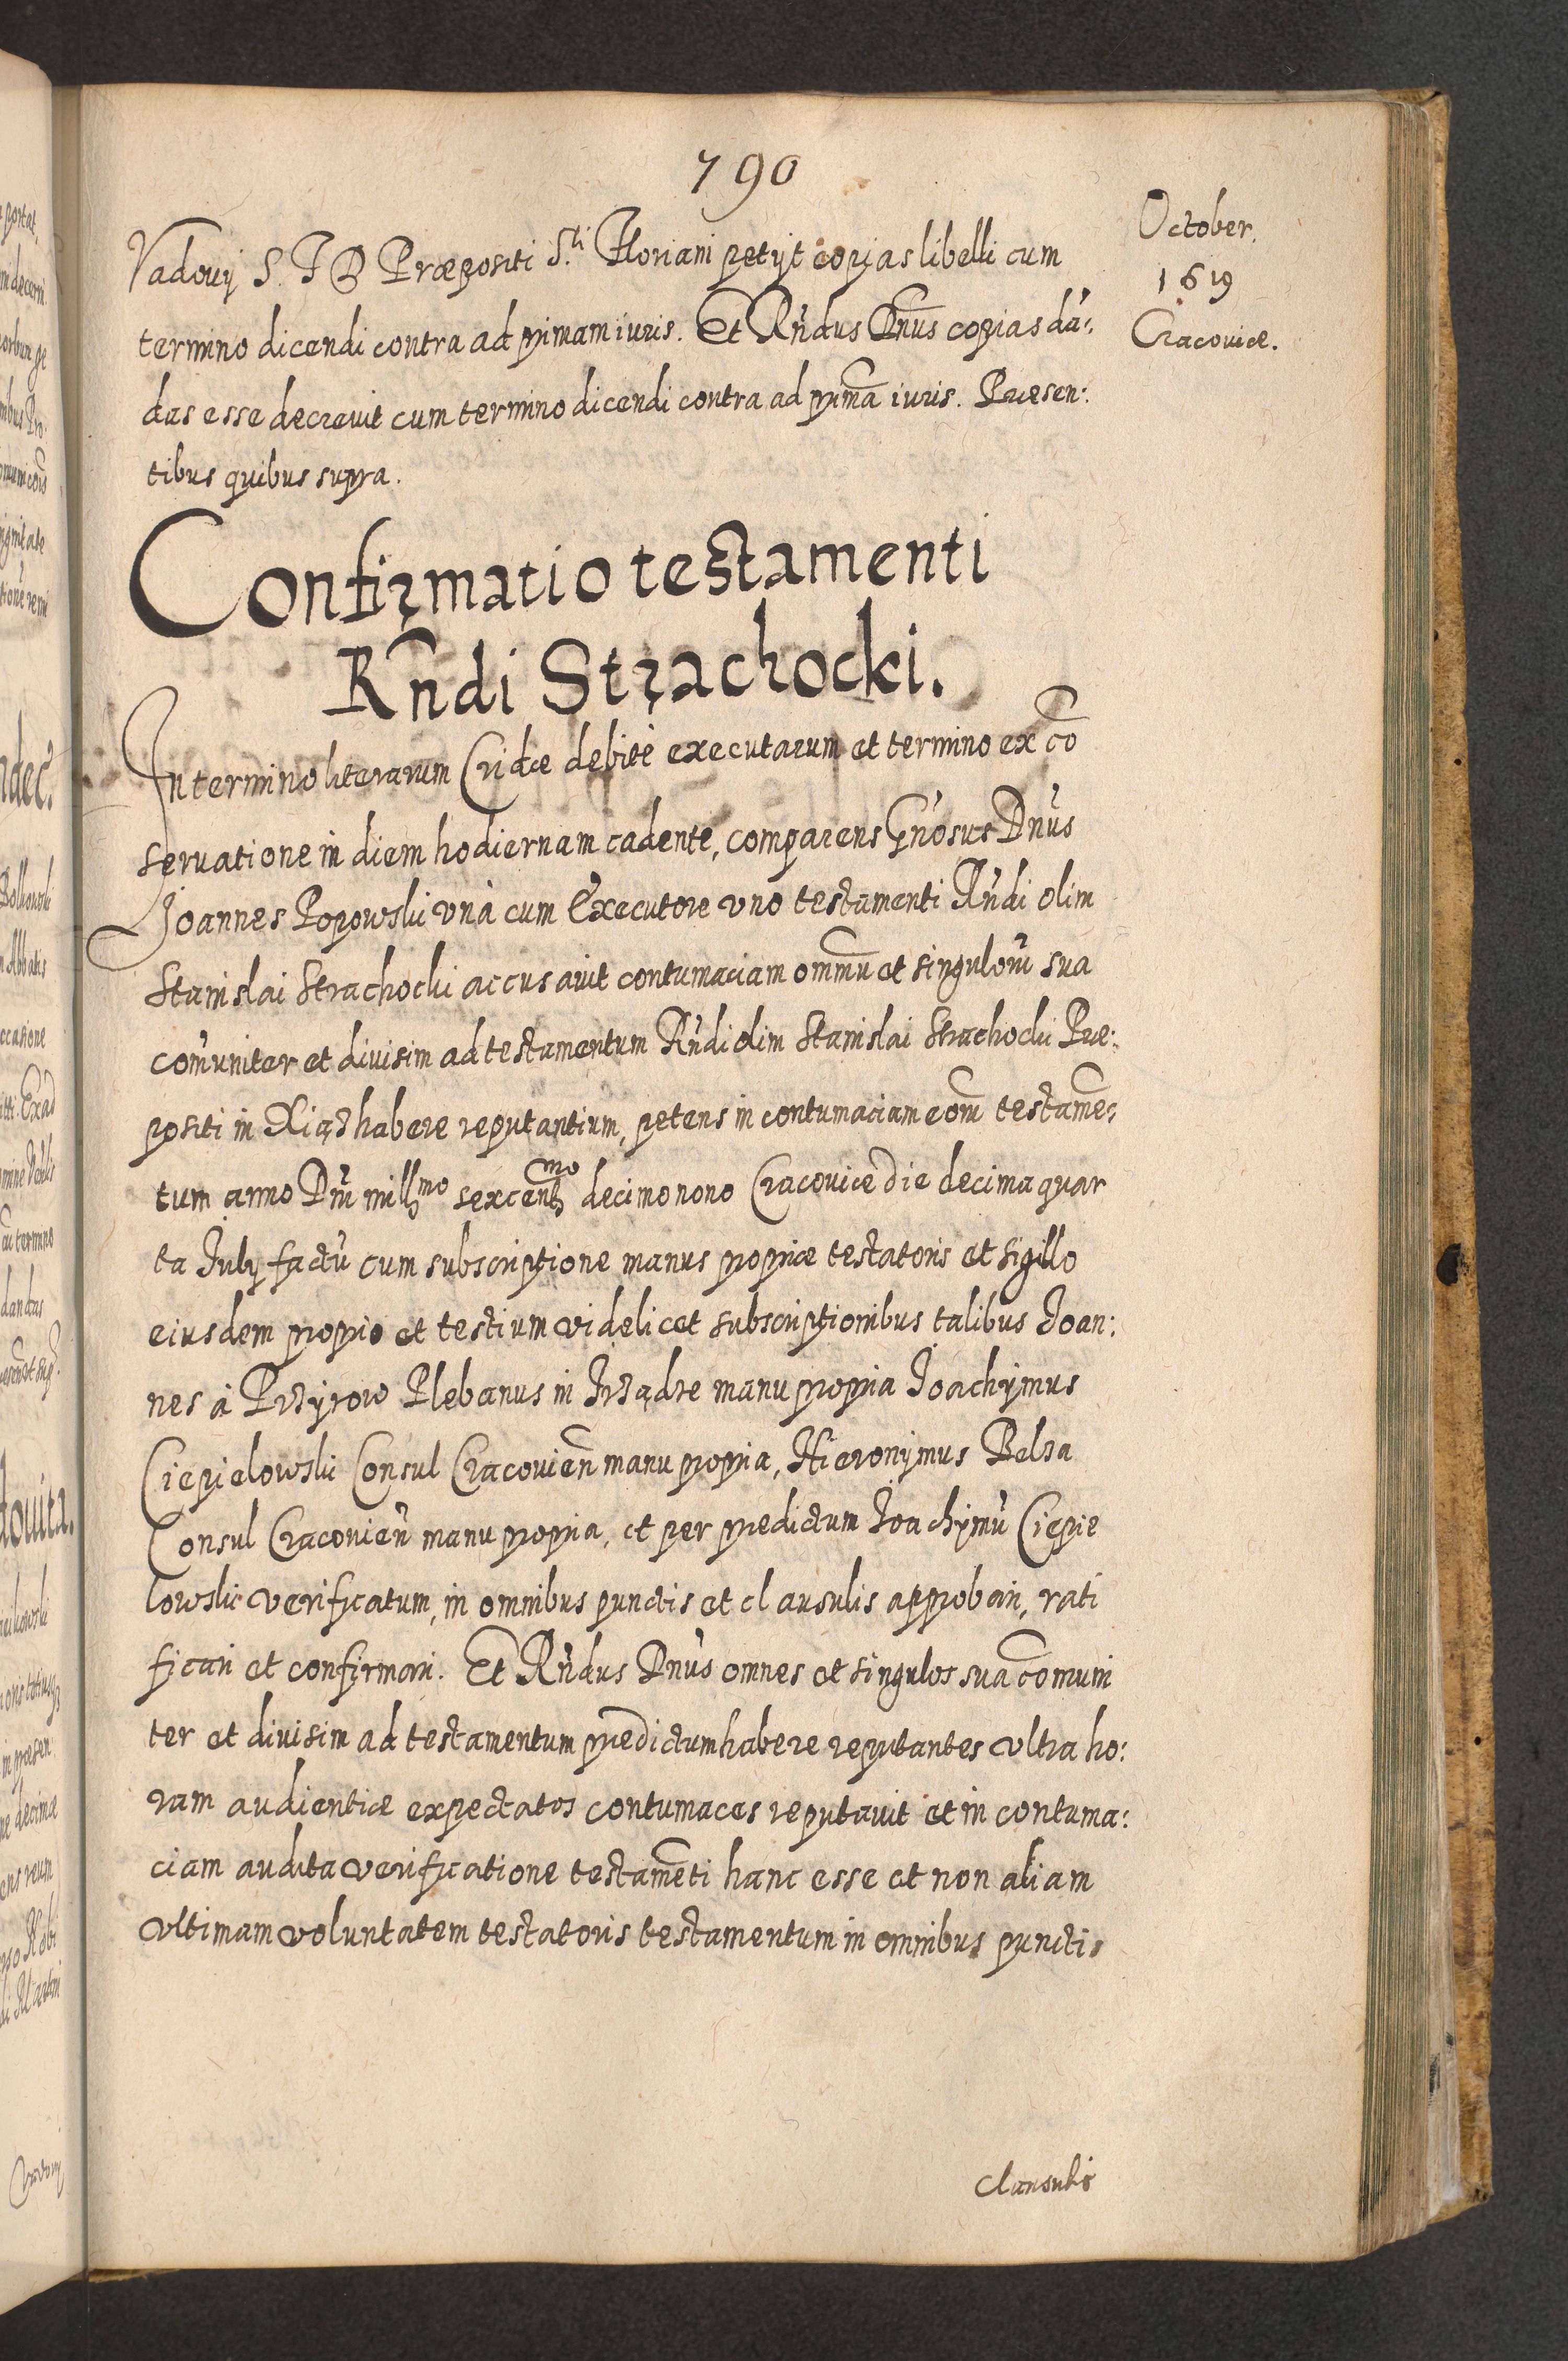 790
October.
1619
Cracoviæ.
Vadovij S. T D Præpositi S.ti Floriani petijt copias libelli cum
termino dicendi contra ad primam iuris. Et Rñdus Dñus copias dã:
das esse decrevit cum termino dicendi contra ad primã iuris. Præsen:
tibus quibus supra.
Confirmatio testamenti
Rñdi Strachocki.
In termino literarum Cridæ debitè executarum et termino ex cõ
servatione in diem hodiernam cadente, comparens Gñosus Dñus
Joannes Popowski vnà cum Executore vno testamenti Rñdi olim
Stanislai Strachocki accusavit contumaciam omniũ et singulorũ sua
comũniter et divisim ad testamentum Rñdi olim Stanislai Strachocki Præ:
positi in Xiąż habere reputantium, petens in contumaciam eorũ testamẽ:
tum anno Dñi mill.mo sexcent.mo decimo nono Cracoviæ die decima quar
ta July factũ cum subscriptione manus propriæ testatoris et sigillo
eiusdem proprio et testium videlicet subscriptionibus talibus Joan:
nes à Przyrow Plebanus in Irządze manu propria Joachymus
Ciepielowski Consul Cracovieñ manu propria, Hieronymus Belza
Consul Cracovieñ manu propria, et per prædictum Joachymũ Ciepie
lowski verificatum, in omnibus punctis et clausulis approbari, rati
ficari et confirmari. Et Rñdus Dñus omnes et singulos sua com̃uni
ter et divisim ad testamentum prædictum habere reputantes vltra ho:
ram audientiæ expectatos contumaces reputavit et in contuma:
ciam audita verificatione testamẽti hanc esse et non aliam
vltimam voluntatem testatoris testamentum in omnibus punctis
clausulis